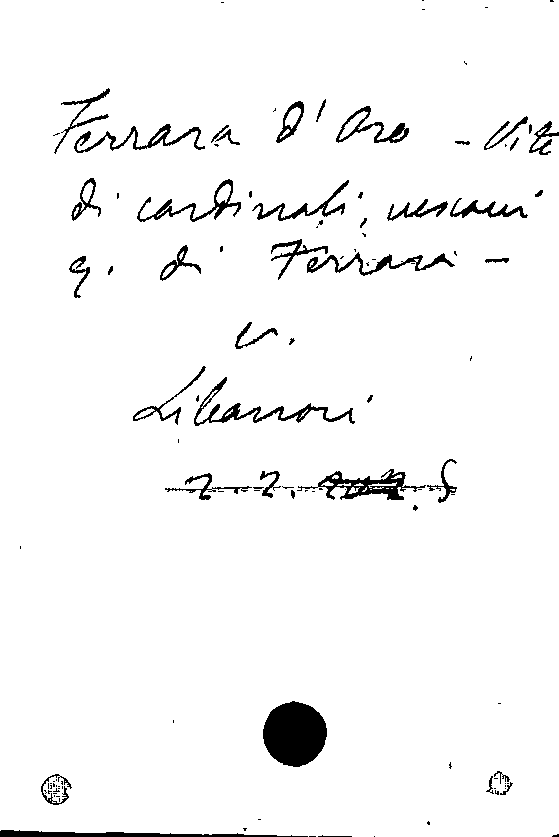 Ferrara d'Oro - Vite
di cardinali, vescovi
q. di Ferrara -
v.
Libanori